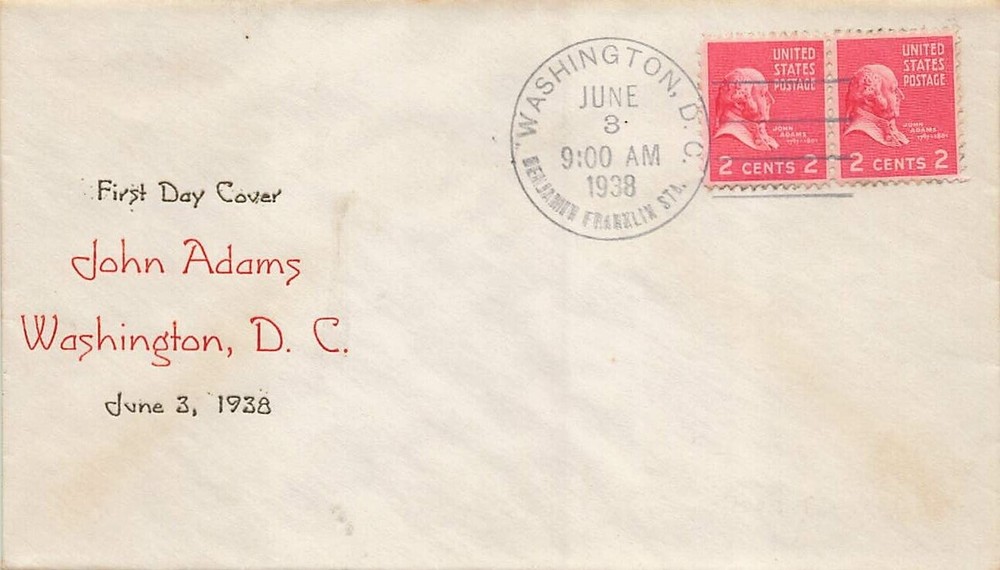 First Day Cover
John Adams
Washington, D. C.
June 3, 1938
WASHINGTON, D. C.
JUNE
3
9:00 AM
1938
BENJAMIN FRANKLIN STA.
UNITED
STATES
POSTAGE
JOHN
ADAMS
1797-1801
2 CENTS 2
UNITED
STATES
POSTAGE
JOHN
ADAMS
1797-1801
2 CENTS 2